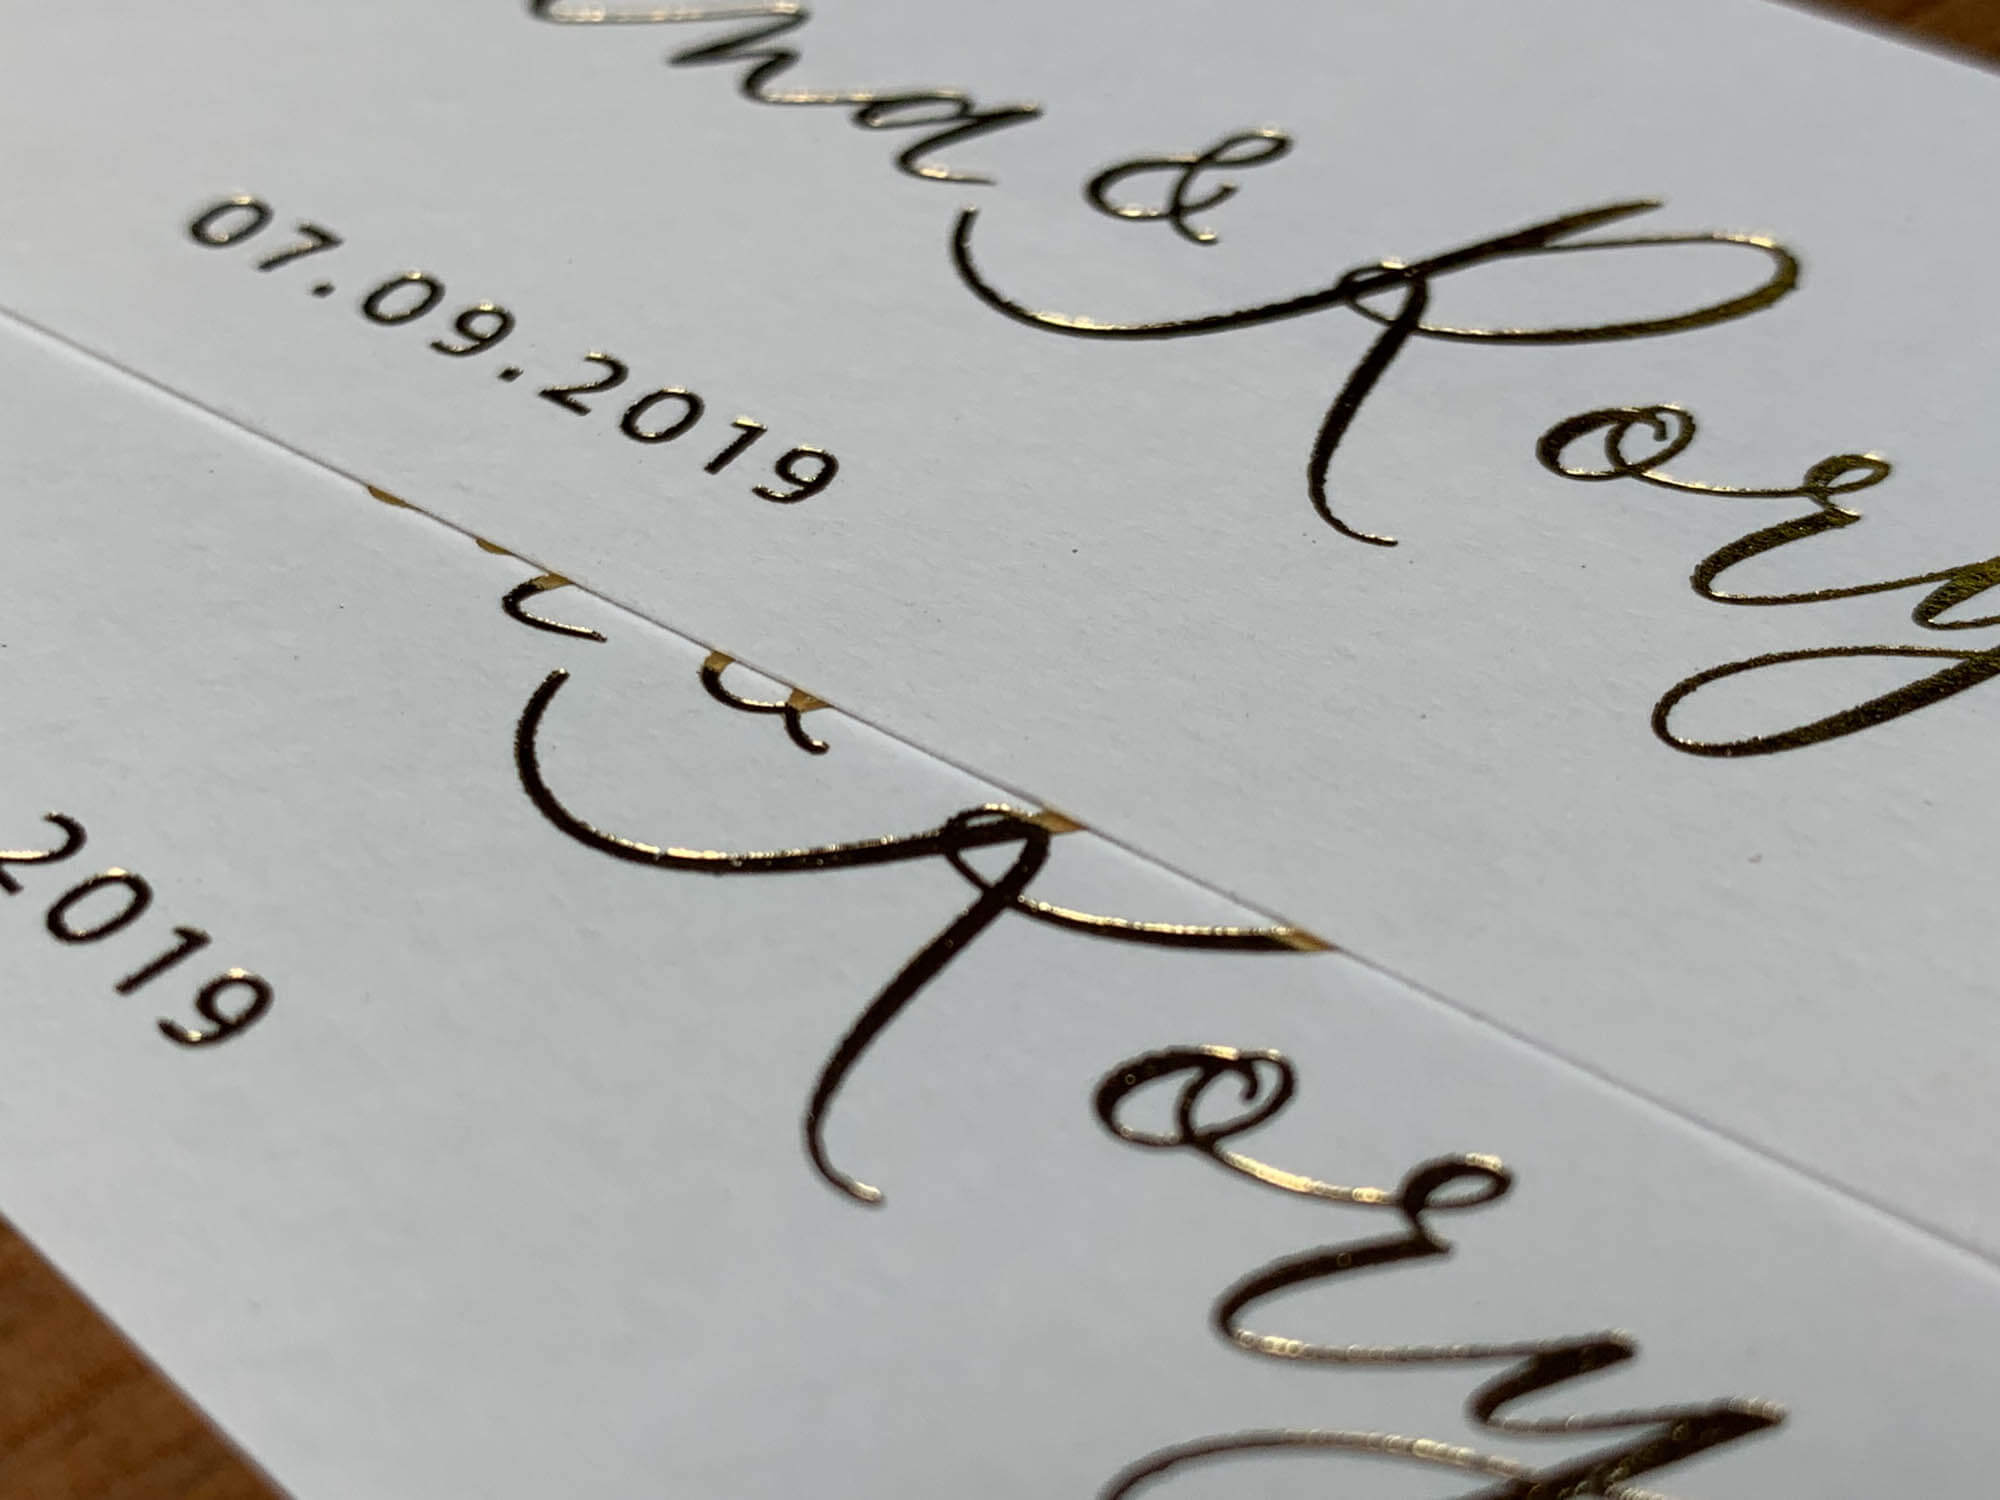 & Rory
07.09.2019
& Rory
2019